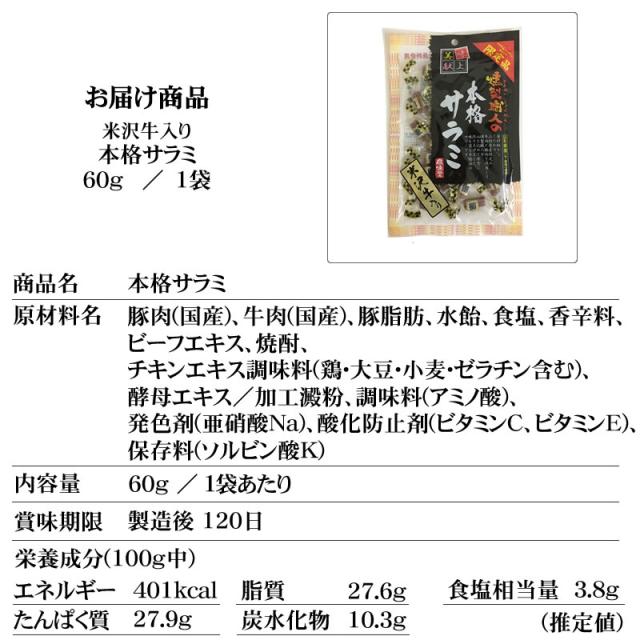 お届け商品
米沢牛入り
本格サラミ
60g ／ 1袋
限定品
燻製職人の
本格サラミ
米沢牛入り
商品名 本格サラミ
原材料名 豚肉(国産)、牛肉(国産)、豚脂肪、水飴、食塩、香辛料、
ビーフエキス、焼酎、
チキンエキス調味料(鶏・大豆・小麦・ゼラチン含む)、
酵母エキス／加工澱粉、調味料(アミノ酸)、
発色剤(亜硝酸Na)、酸化防止剤(ビタミンC、ビタミンE)、
保存料(ソルビン酸K)
内容量 60g ／ 1袋あたり
賞味期限 製造後 120日
栄養成分(100g中)
エネルギー 401kcal 脂質 27.6g 食塩相当量 3.8g
たんぱく質 27.9g 炭水化物 10.3g (推定値)